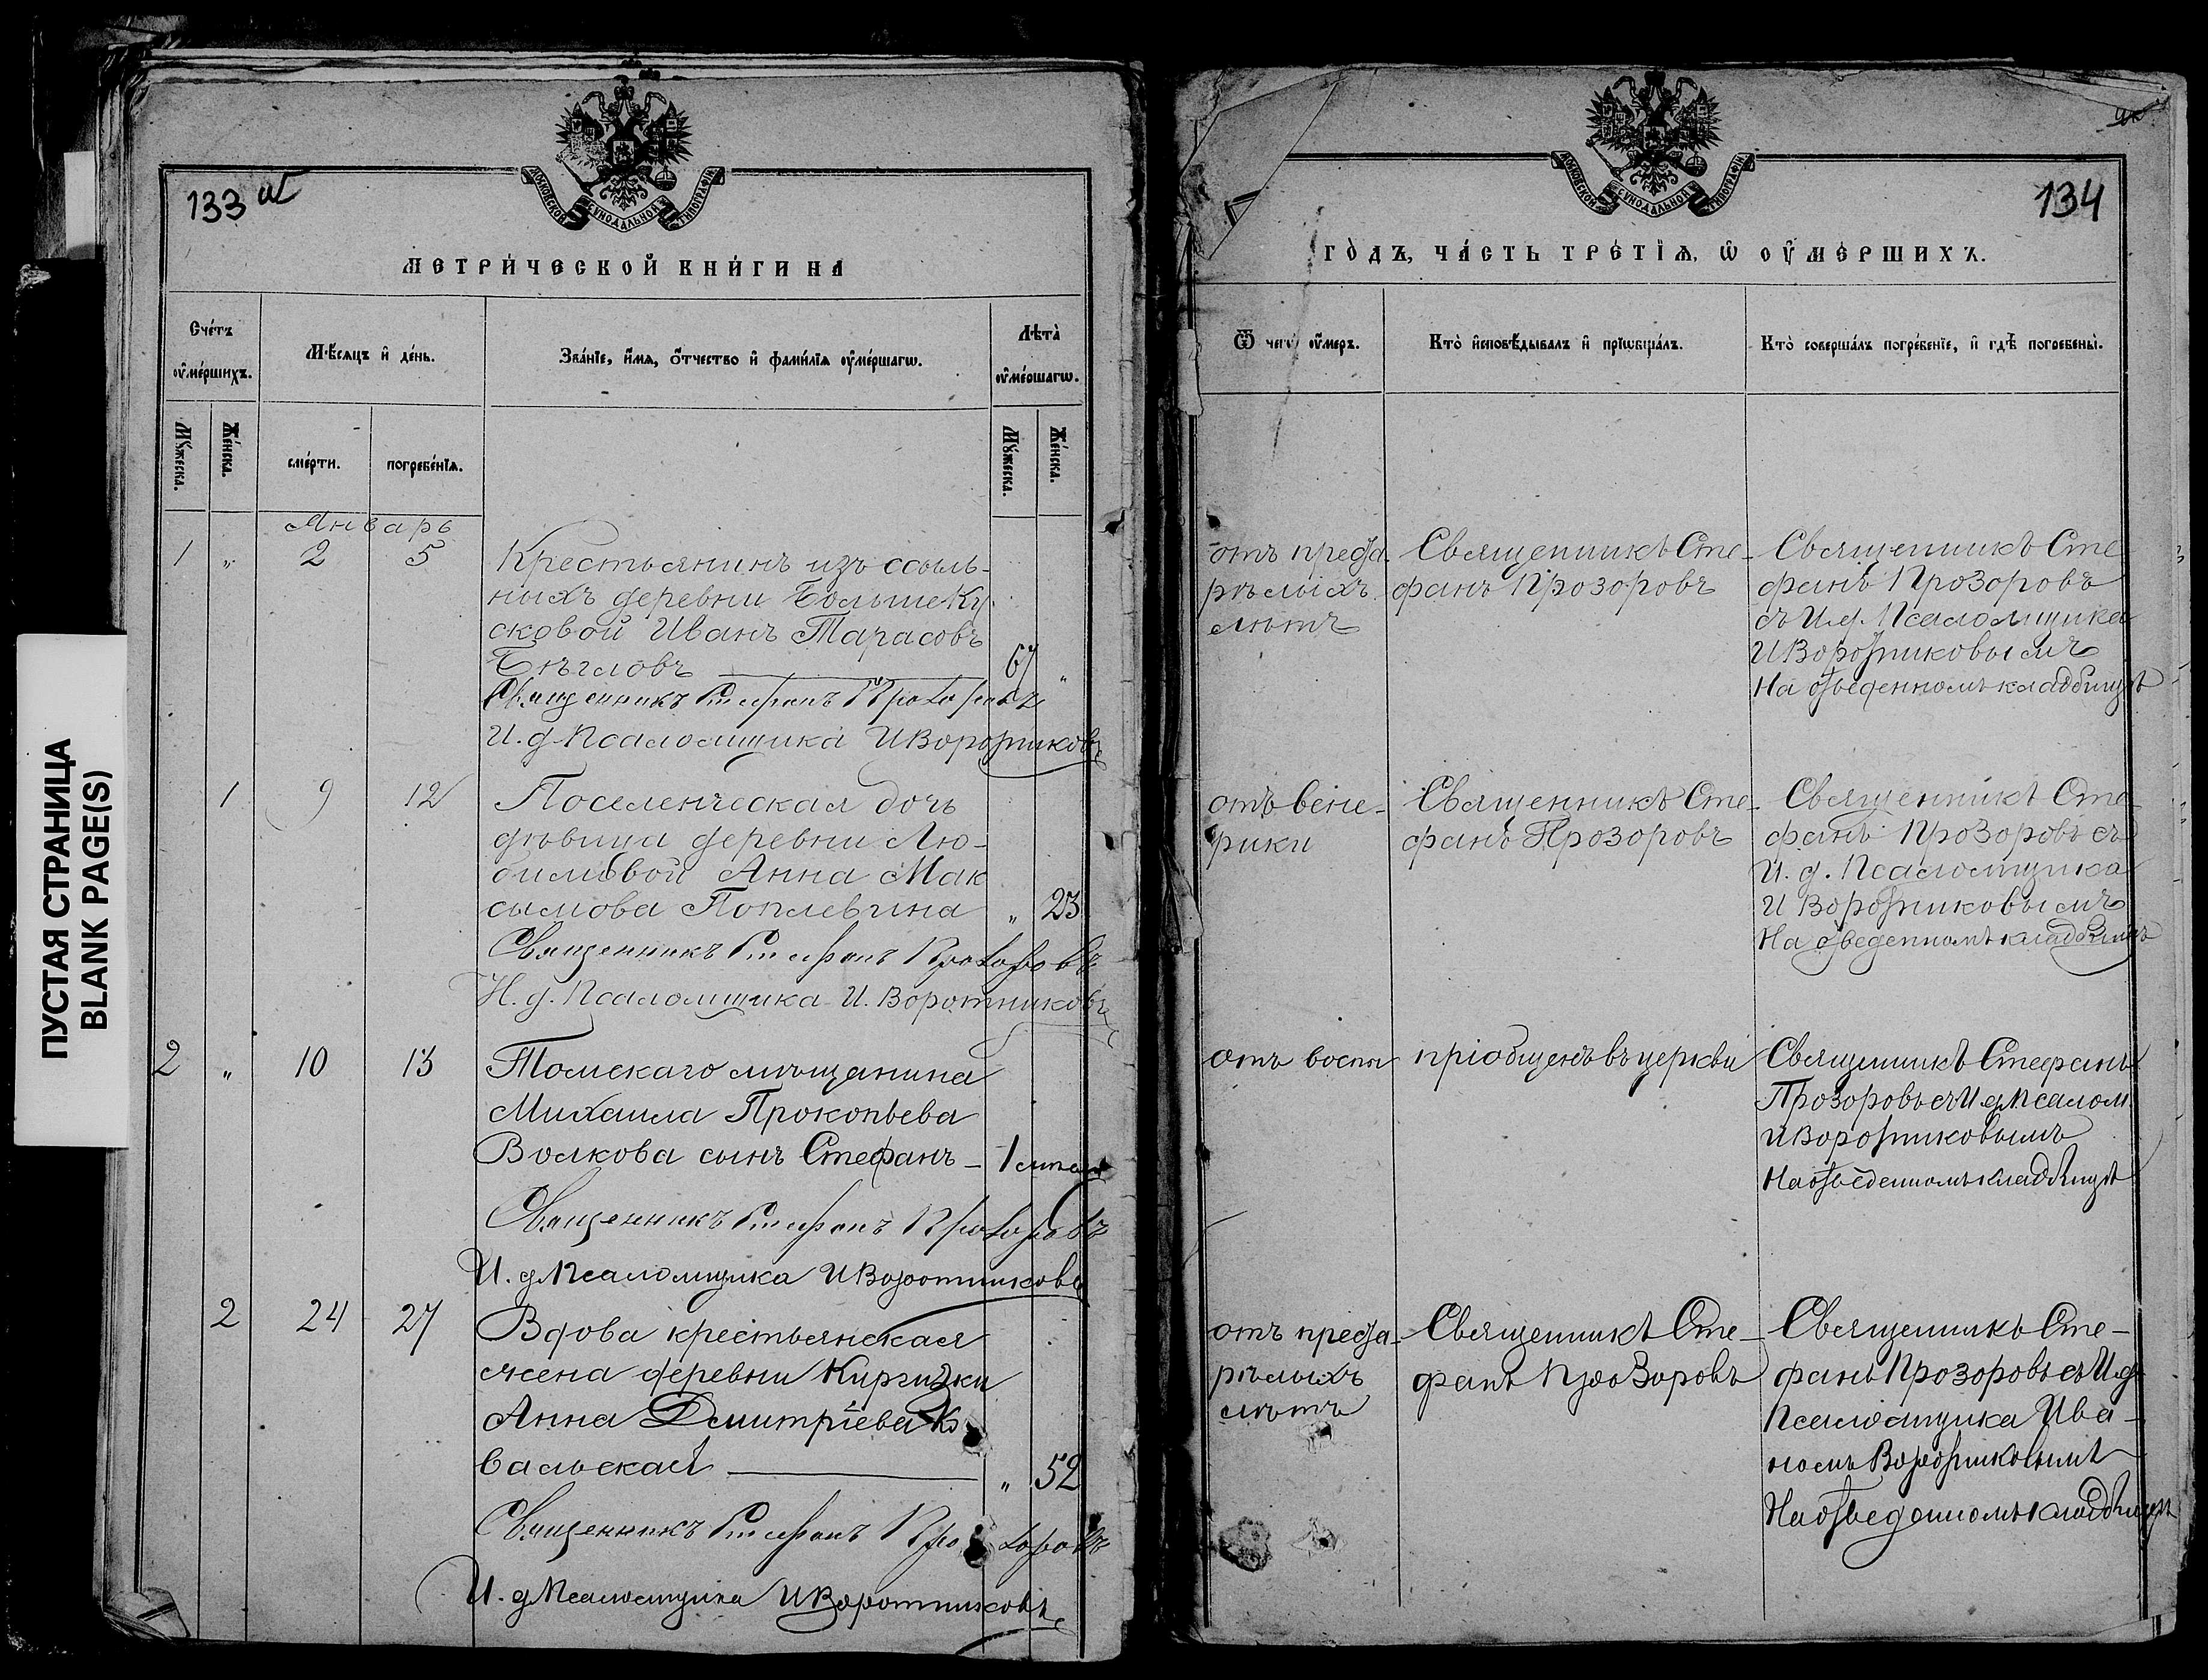 ПУСТАЯ СТРАНИЦА
BLANK PAGE(S)
133
МОСКОВСКОЙ СѴНОДАЛЬНОЙ ТИПОГРАФІИ
МЕТРИ́ЧЕСКОЙ КНИ́ГИ НА
Сче́тъ оу҆ме́ршихъ.
Мѣ́сяцъ и҆ де́нь.
Зва́нїе, и҆́мя, ѻ҆́тчество и҆ фами́лїя оу҆ме́ршагѡ.
Лѣ́та оу҆ме́ршагѡ.
Мꙋ́жеска.
Же́нска.
сме́рти.
погребе́нїѧ.
Мꙋ́жеска.
Же́нска.
Январь
1 „ 2 5 Крестьянинъ изъ ссыль-
ныхъ деревни Большеку-
сковой Иванъ Тарасовъ
Бѣгловъ 67 „
Священникъ Стефанъ Прозоровъ
И. д. Псаломщика И Воротниковъ
1 9 12 Поселенческая дочь
дѣвица деревни Лю-
бимовой Анна Мак
сымова Поплевина „ 23
Священникъ Стефанъ Прозоровъ
И. д. Псаломщика И. Воротниковъ
2 „ 10 13 Томскаго мѣщанина
Михаила Прокопьева
Волкова сынъ Стефанъ – 1
Священникъ Стефанъ Прозоровъ
И. д Псаломщика И Воротниковъ
2 24 27 Вдова крестьянская
жена деревни Киргизки
Анна Дмитріева Ко
вальская „ 52
Священникъ Стефанъ Прозоровъ
И. д Псаломщика И Воротниковъ
134
МОСКОВСКОЙ СѴНОДАЛЬНОЙ ТИПОГРАФІИ
ГО́ДЪ, ЧА́СТЬ ТРЕ́ТЇѦ, Ѡ҆ ОУ҆МЕ́РШИХЪ.
Ѿ чегѡ̀ оу҆́меръ.
Кто̀ и҆сповѣ́дывалъ и҆ прїѡбща́лъ.
Кто̀ соверша́лъ погребе́нїе, и҆ гдѣ̀ погребены̀.
отъ преста-
рѣлыхъ
лѣтъ
Священникъ Сте-
фанъ Прозоровъ
Священникъ Сте
фанъ Прозоровъ
съ И.д. Псаломщика
И Воротниковымъ
На отведенномъ кладбищѣ
отъ вене-
рики
Священникъ Сте-
фанъ Прозоровъ
Священникъ Сте-
фанъ Прозоровъ съ
И. д. Псаломщика
И Воротниковымъ
На отведенномъ кладбищѣ
отъ воспы
пріобщенъ въ церкви
Священникъ Стефанъ
Прозоровъ съ И. д Псалом.
И Воротниковымъ
На отведенномъ кладбищѣ
отъ преста-
рѣлыхъ
лѣтъ
Священникъ Сте-
фанъ Прозоровъ
Священникъ Сте-
фанъ Прозоровъ съ И.д
Псаломщика Ива-
номъ Воротниковымъ
На отведенномъ кладбищѣ